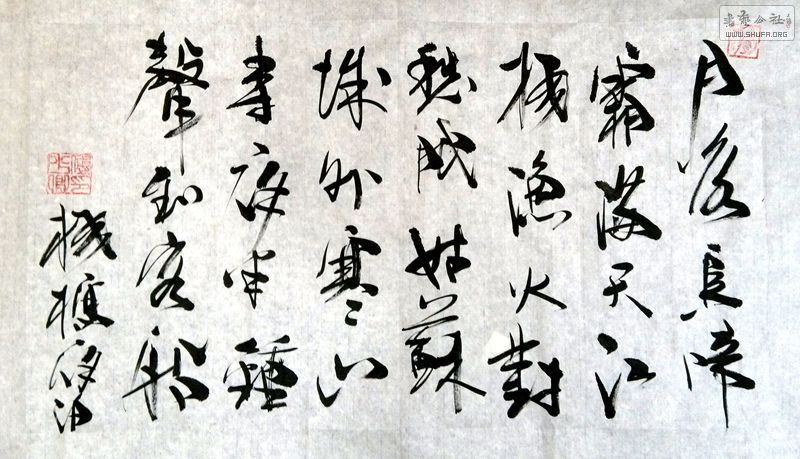 月落烏啼
霜滿天江
楓漁火對
愁眠姑蘇
城外寒山
寺夜半鐘
聲到客船
楓橋夜泊
書藝公社
WWW.SHUFA.ORG